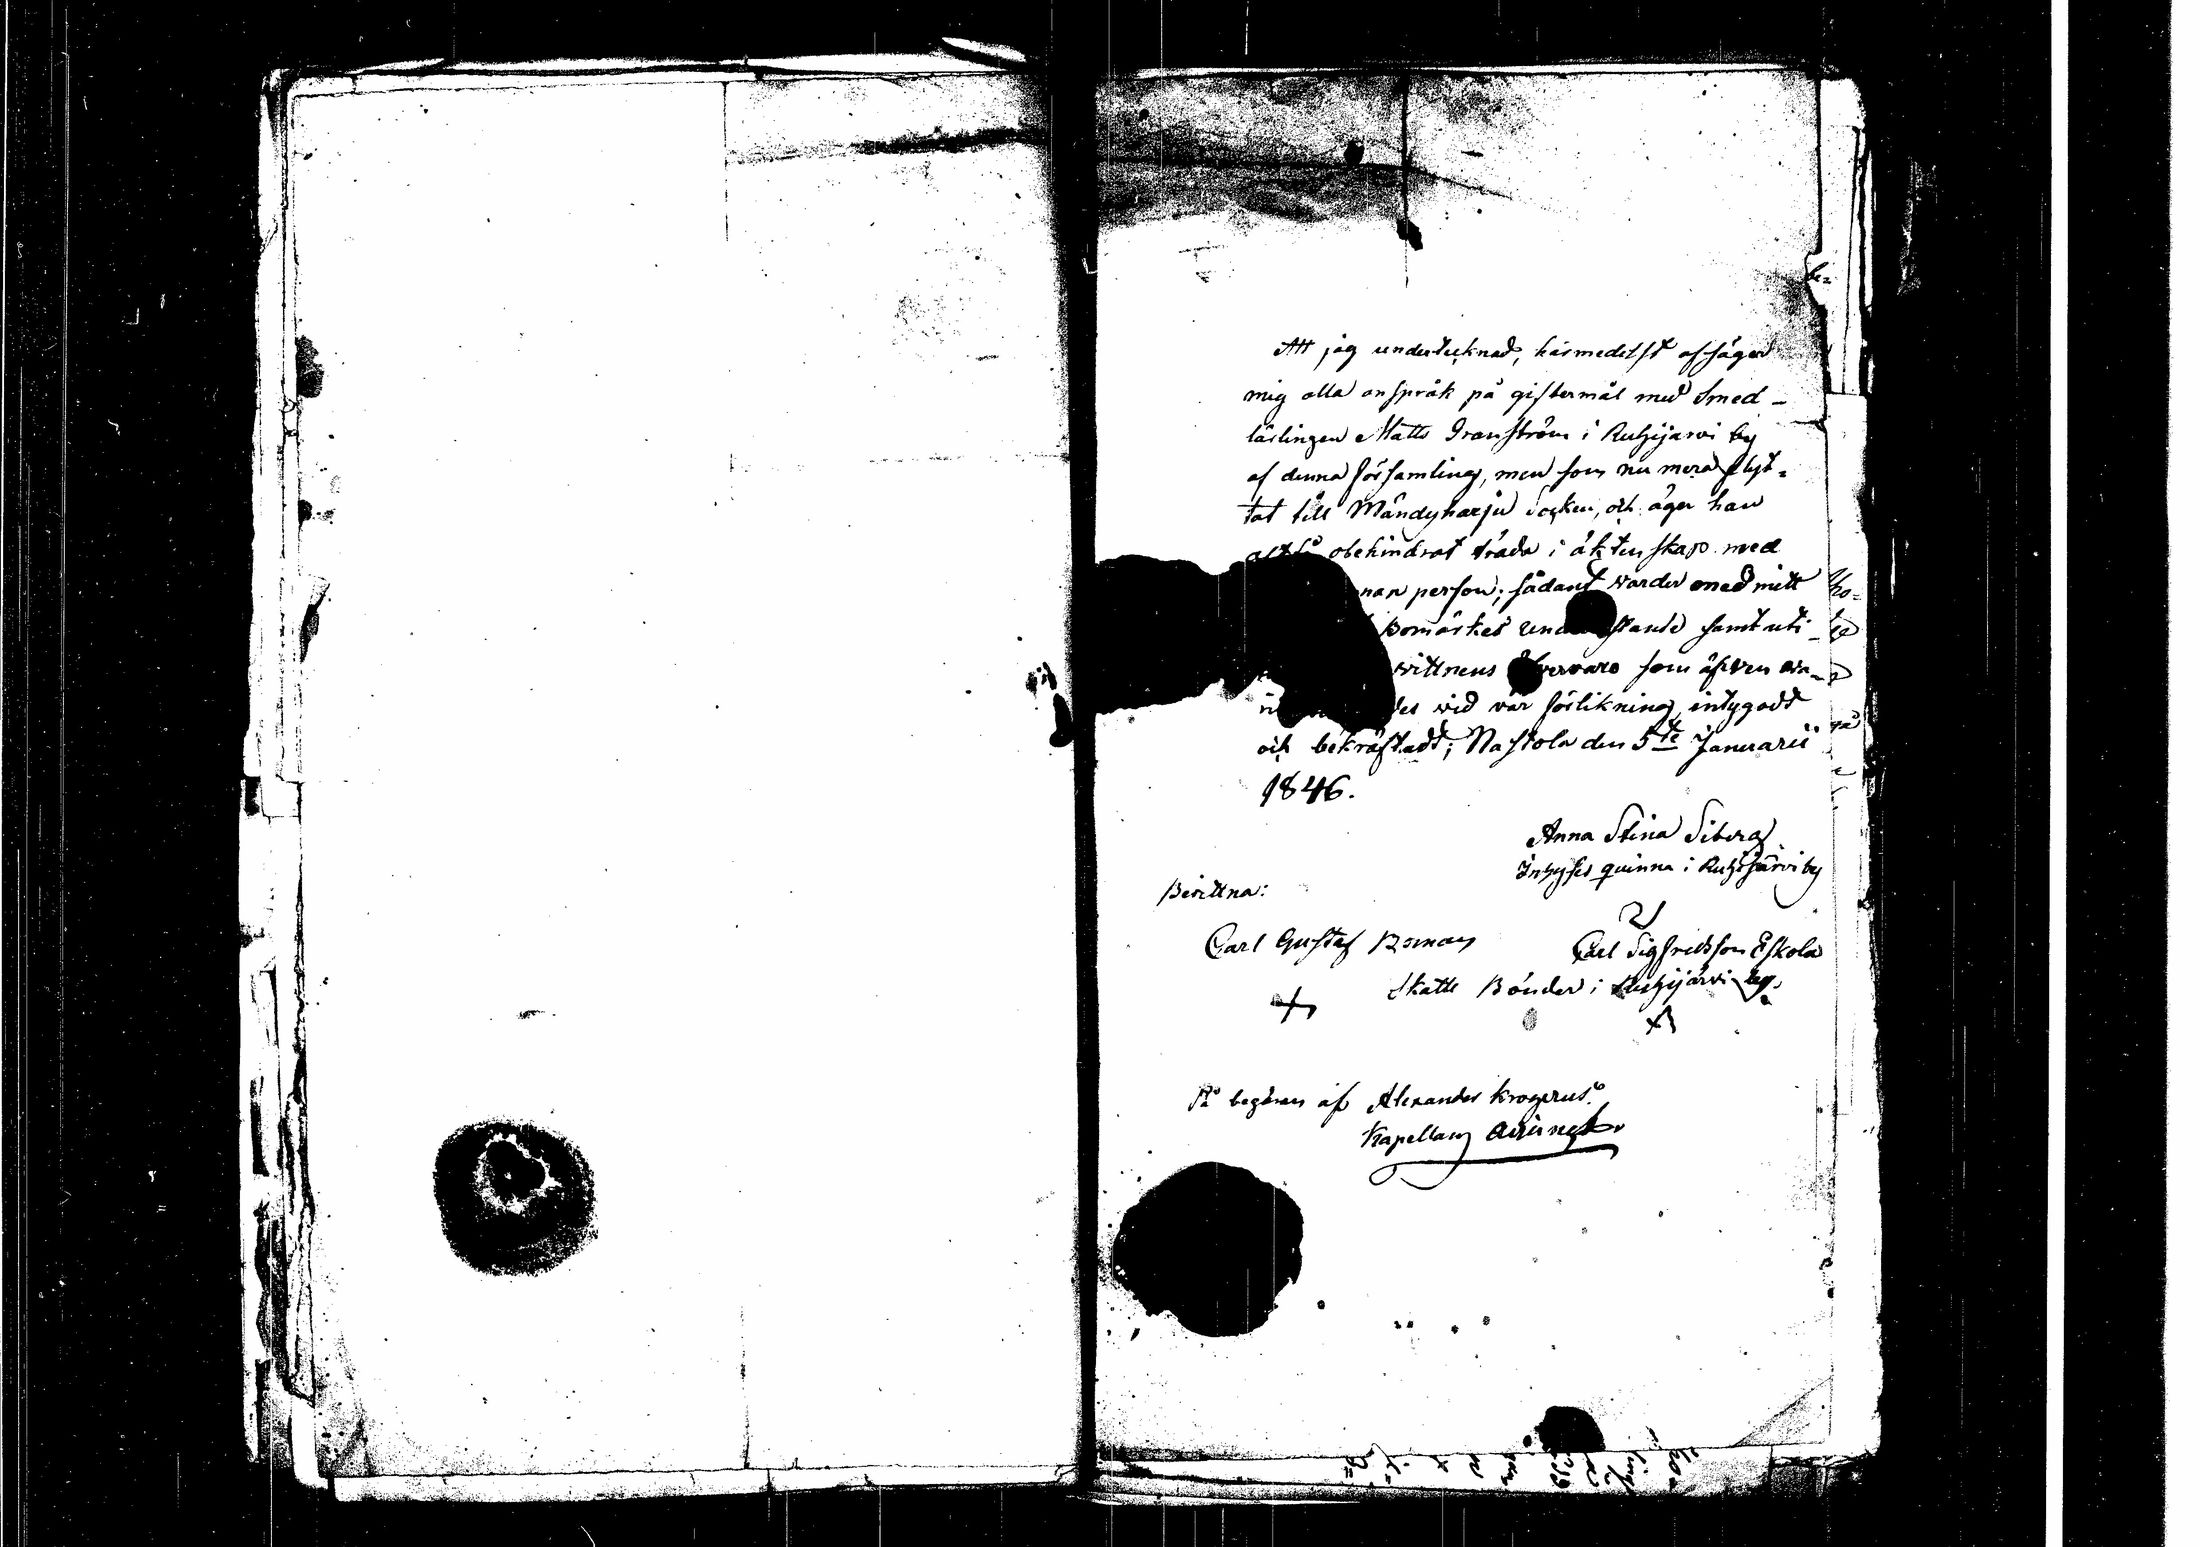 Att jag undertecknad, härmedelst afsäger
mig alla anspråk på giftermål med Smed-
lärlingen Matts Granström i Ruhijärvi by
af denna församling, men som nu mera flyt=
tat till Mändyharju Socken, och äger han
altså obehindrat träda i äktenskap med
nan person; sådant warder med mitt
Bomärkes understående samt uti
wittnens öfwervaro som äfwen wa-
des wid vår förlikning, intygadt
och bekräftadt; Nastola den 5te Januarii
1846.
Anna Stina Siberg
Inhyses quinna i Ruhijärvi by
Bevittna:
Carl Gustaf Boman
Carl Sigfridsson Eskola
Skatte Bönder i Ruhijärvi by.
På begäran af Alexander Krogerus.
Kapellans